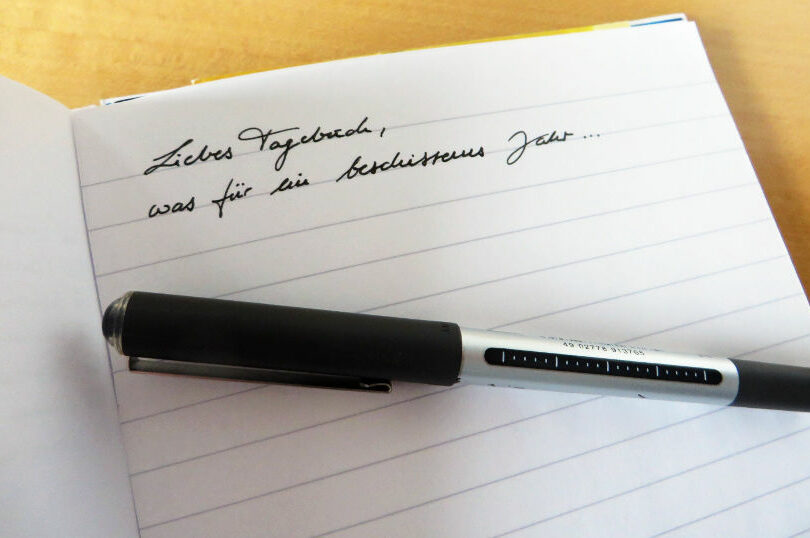 Liebes Tagebuch,
was für ein beschissenes Jahr...
49 02778 913765